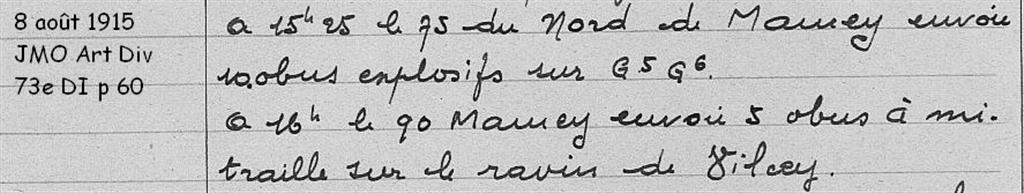 8 août 1915
JMO Art Div
73e DI p 60
a 15h 25 le 75 du Nord de Mamey envoie
10 obus explosifs sur G5 G6.
a 16h le 90 Mamey envoie 5 obus à mi-
traille sur le ravin de Vilcey.